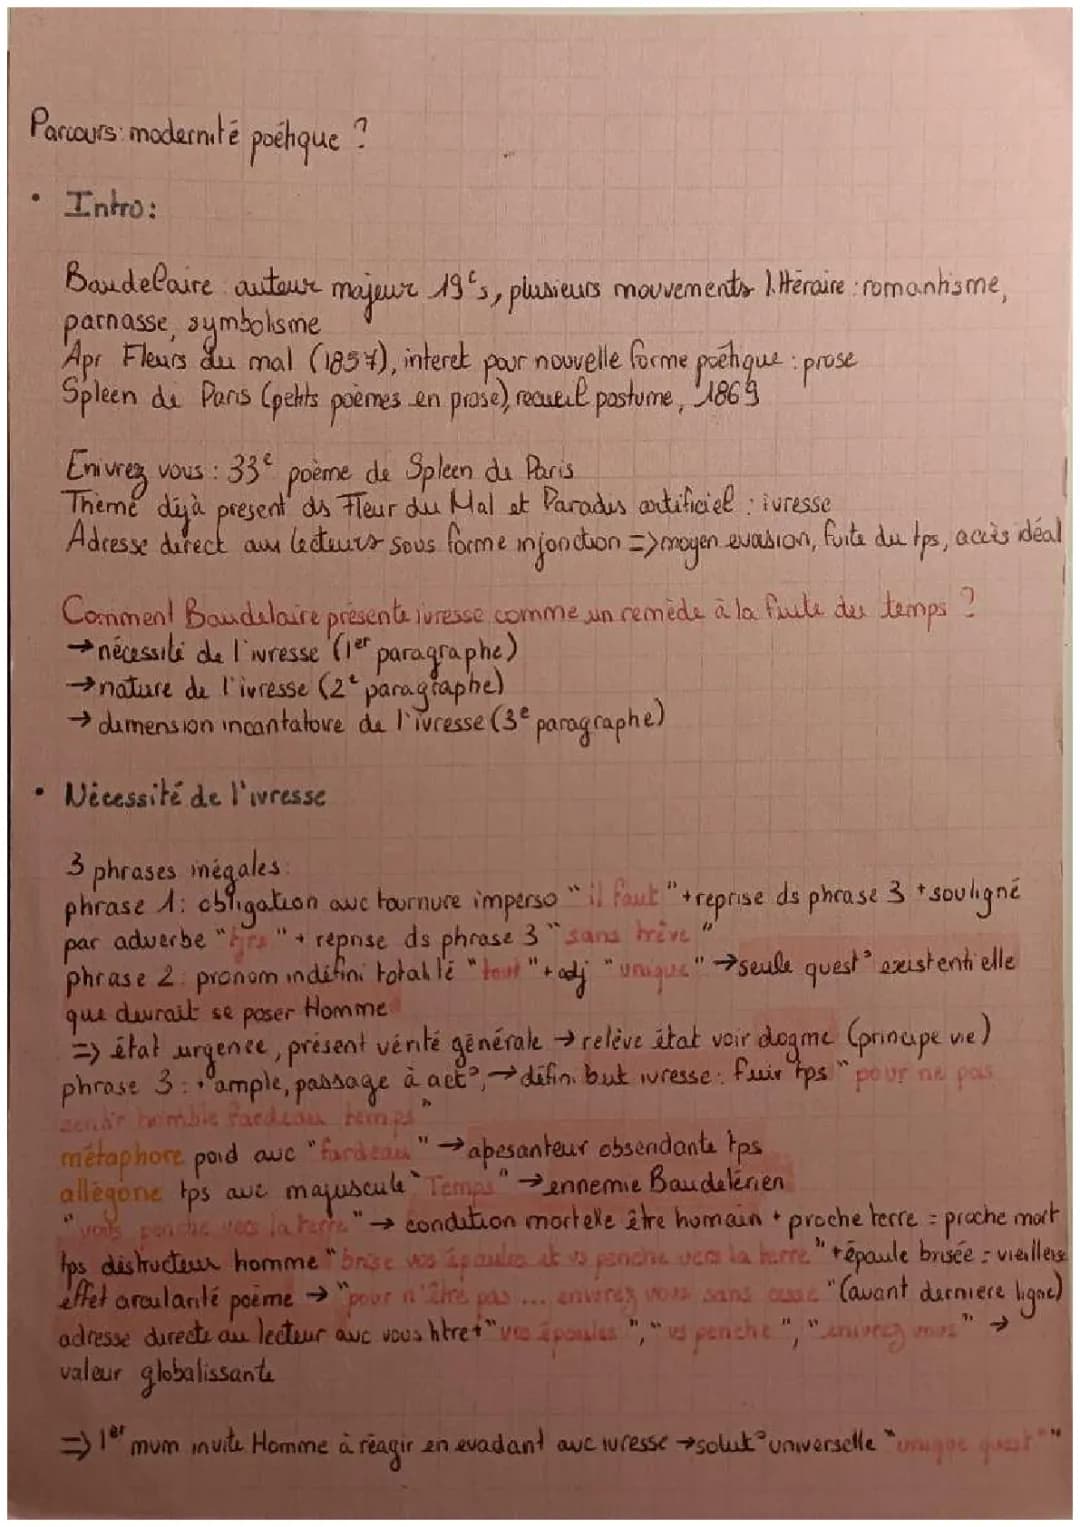 Parcours: modernité poétique ?
• Intro:
Baudelaire : auteur majeur 19e s, plusieurs mouvements littéraire : romantisme,
parnasse, symbolisme
Apr Fleurs du mal (1857), interet pour nouvelle forme poétique : prose
Spleen de Paris (petits poèmes en prose), recueil postume, 1869
Enivrez vous : 33e poème de Spleen de Paris
Thème déjà present ds Fleur du Mal et Paradis artificiel : ivresse
Adresse direct aux lecteurs sous forme injonction => moyen evasion, fuite du tps, accès idéal
Comment Baudelaire présente ivresse comme un remède à la fuite du temps ?
→ nécessité de l'ivresse (1er paragraphe)
→ nature de l'ivresse (2e paragraphe)
→ dimension incantatoire de l'ivresse (3e paragraphe)
• Nécessité de l'ivresse
3 phrases inégales:
phrase 1: obligation avc tournure imperso "il faut" + reprise ds phrase 3 + souligné
par adverbe "tjrs" + reprise ds phrase 3 "sans trêve"
phrase 2: pronom indéfini totalité "tout" + adj "unique" → seule quest° existentielle
que devrait se poser Homme
=> état urgence, présent vérité générale → relève état voir dogme (principe vie)
phrase 3: + ample, passage à act°, → défin. but ivresse: fuir tps "pour ne pas
sentir horrible fardeau temps"
métaphore poid avc "fardeau" → apesanteur obsendante tps
allégorie tps avc majuscule "Temps" → ennemie Baudelérien
"vous penche vers la terre" → condition mortelle être humain + proche terre = proche mort
tps déstructeur homme "brise vos épaules et vs penche vers la terre" + épaule brisée = vieillesse
effet circularité poème → "pour n'être pas ... enivrez vous sans cesse" (avant derniere ligne)
adresse directe au lecteur avc vous titre + "vos épaules", "vs penche", "enivrez vous" →
valeur globalissante
=> 1er mvm invite Homme à réagir en evadant avc ivresse → solut° universelle "unique quest°"